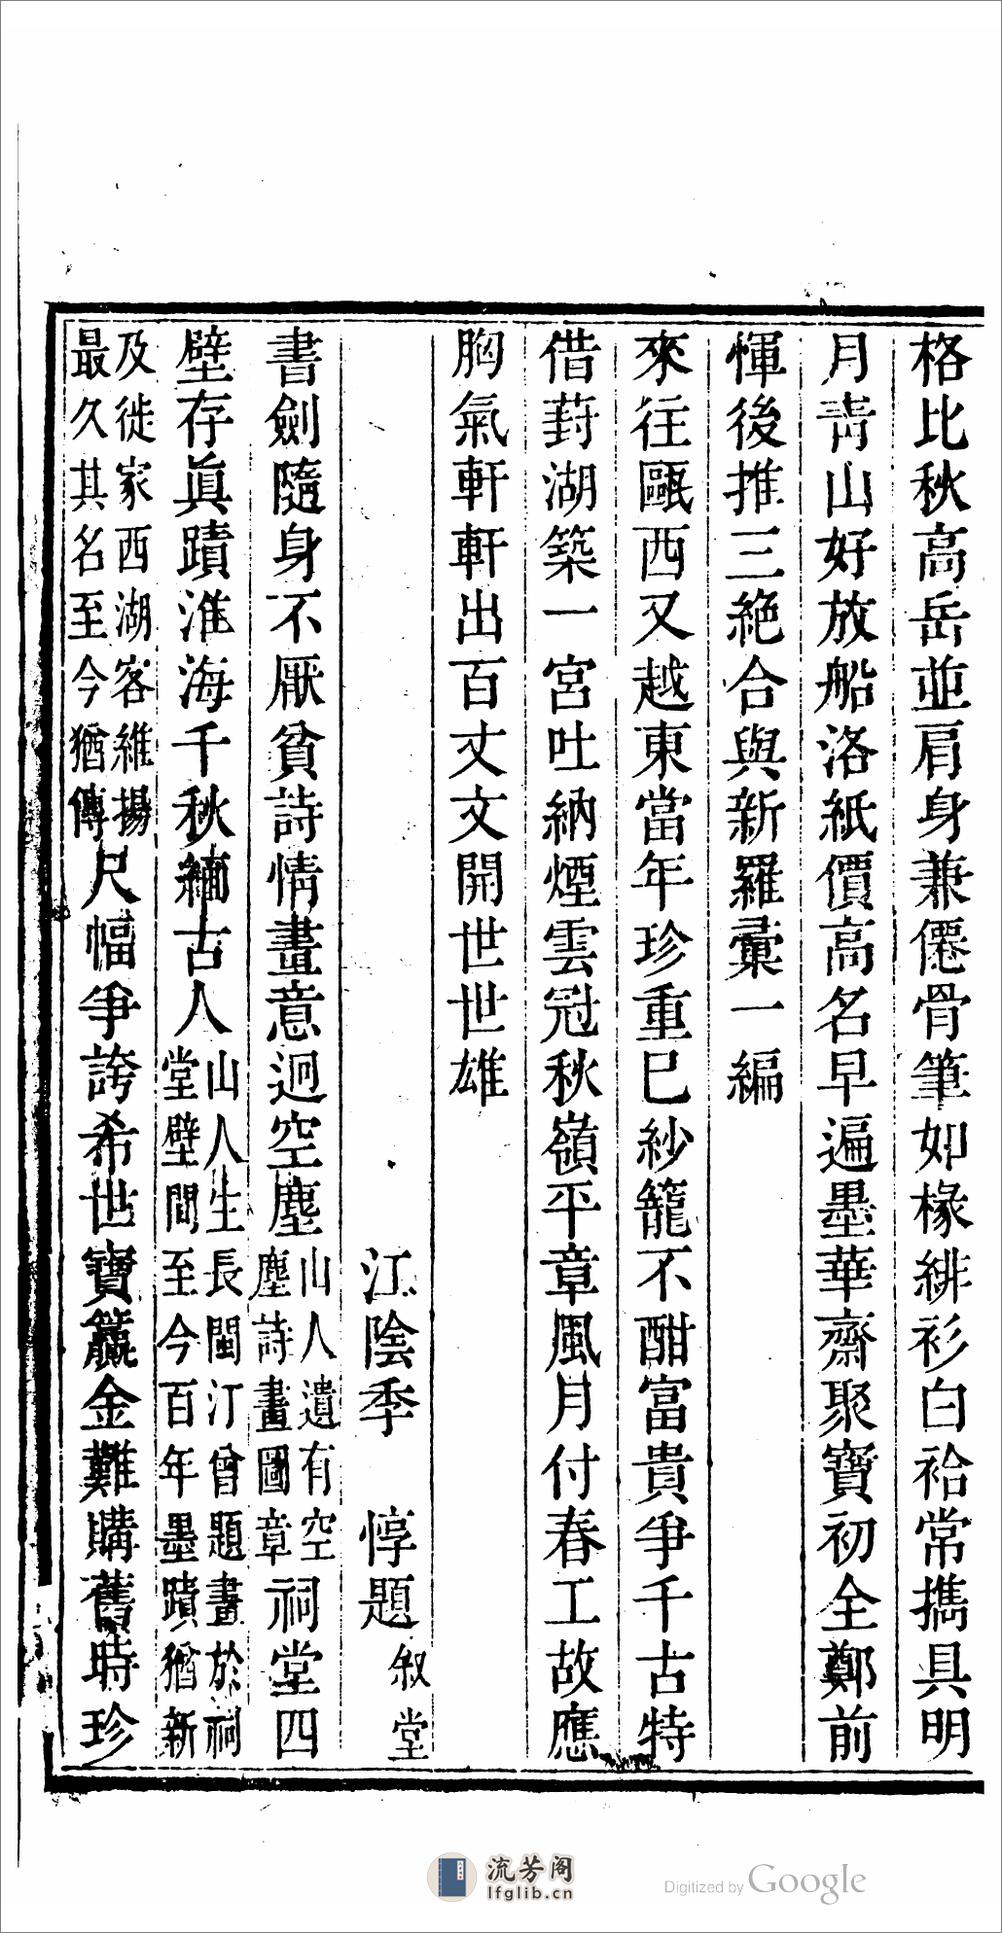 格比秋高岳並肩身兼僊骨筆如椽緋衫白袷常攜具明
月青山好放船洛紙價高名早遍墨華齋聚寶初全鄭前
惲後推三絕合與新羅彙一編
來往甌西又越東當年珍重已紗籠不酣富貴爭千古特
借葑湖築一宮吐納煙雲冠秋嶺平章風月付春工故應
胸氣軒軒出百丈文開世世雄
江陰季惇題叙堂
書劍隨身不厭貧詩情畫意迥空塵山人遺有空塵詩畫圖章祠堂四
壁存眞蹟淮海千秋緬古人山人生長閩汀曾題畫於祠堂壁間至今百年墨蹟猶新
及徙家西湖客維揚最久其名至今猶傳尺幅爭誇希世寶籯金難購舊時珍
流芳阁
lfglib.cn
Digitized by Google